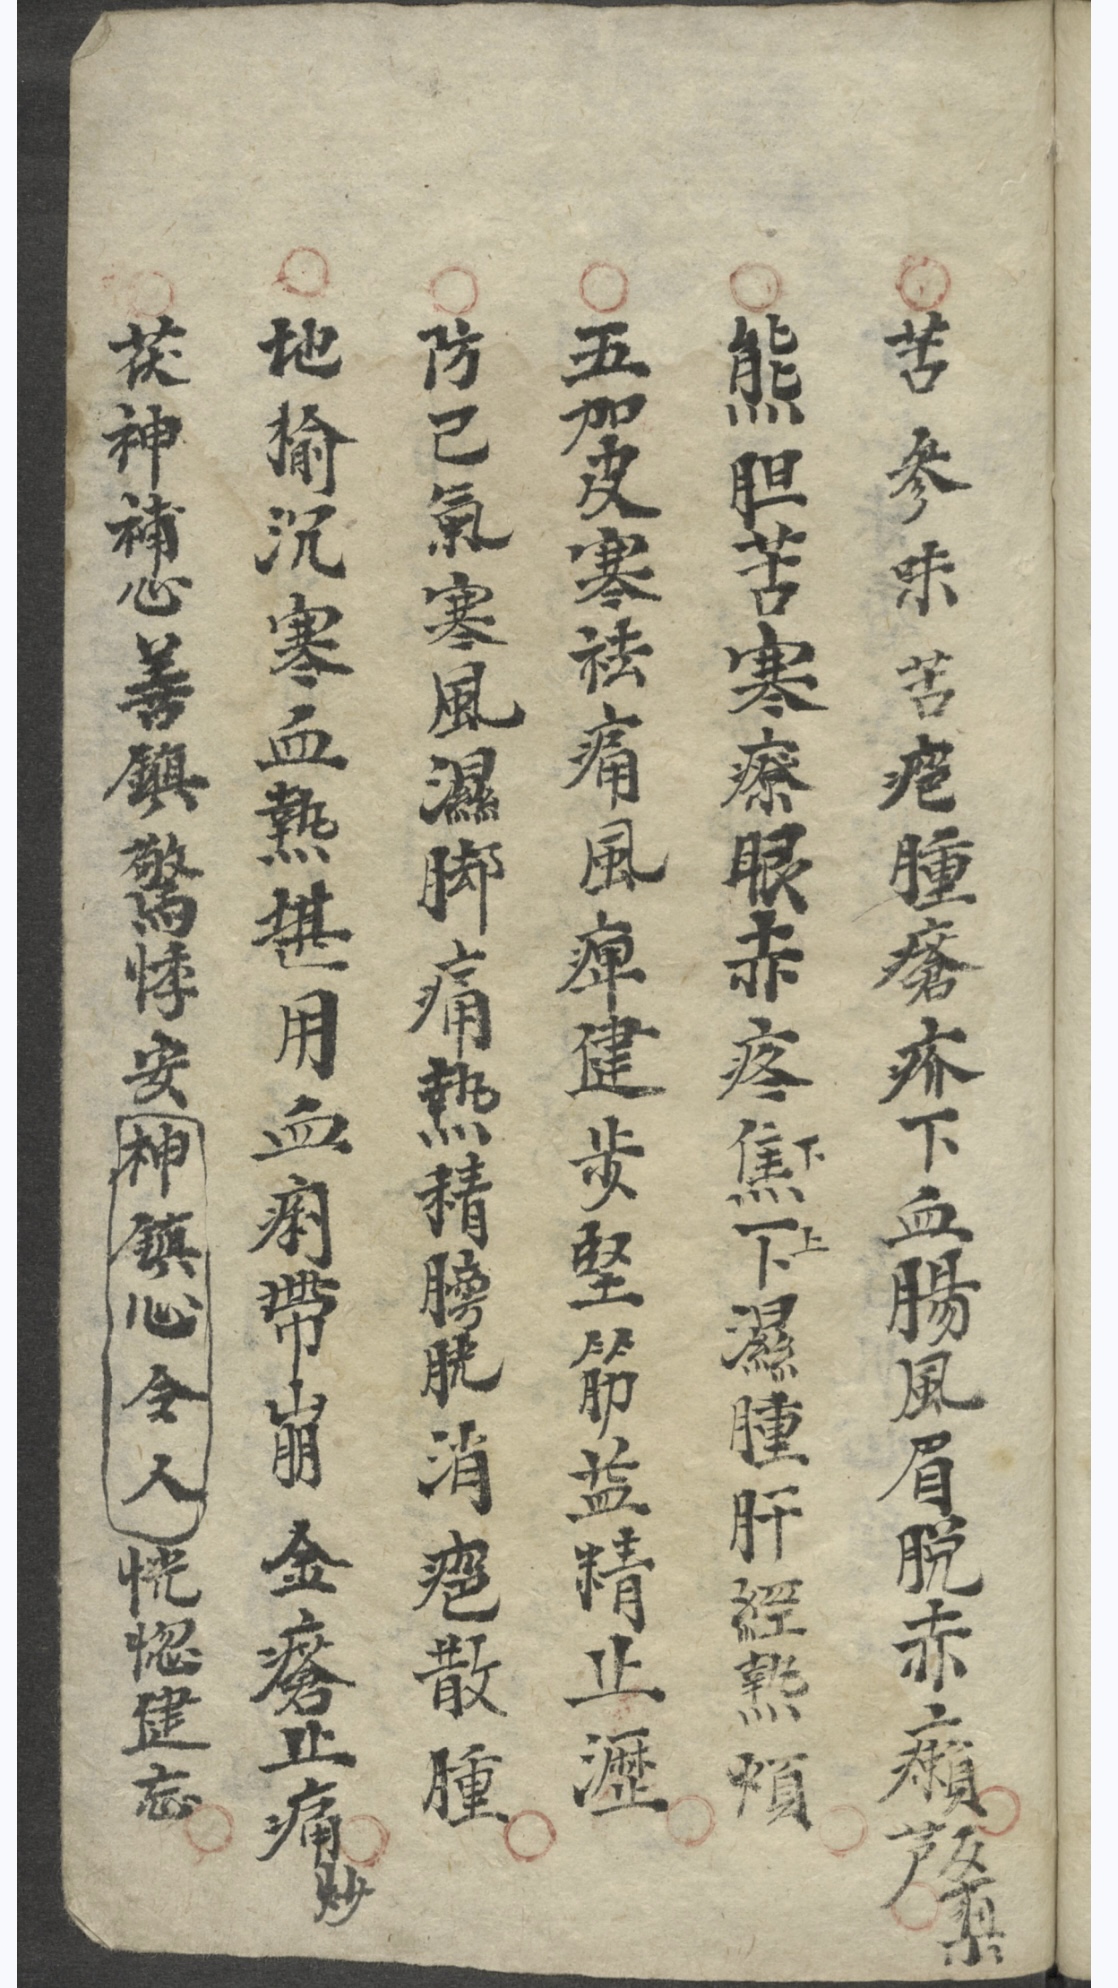 苦參味苦疤腫瘡疥下血腸風眉脱赤癩
熊胆苦寒療眼赤疼焦下下上濕腫肝經熱煩
五加皮寒祛痛風痺健步堅筋益精止瀝
防己氣寒風濕脚痛熱積膀胱消疤散腫
地榆沉寒血熱堪用血痢帶崩金瘡止痛炒
茯神補心善鎮驚悸安神鎮心令人恍惚健忘